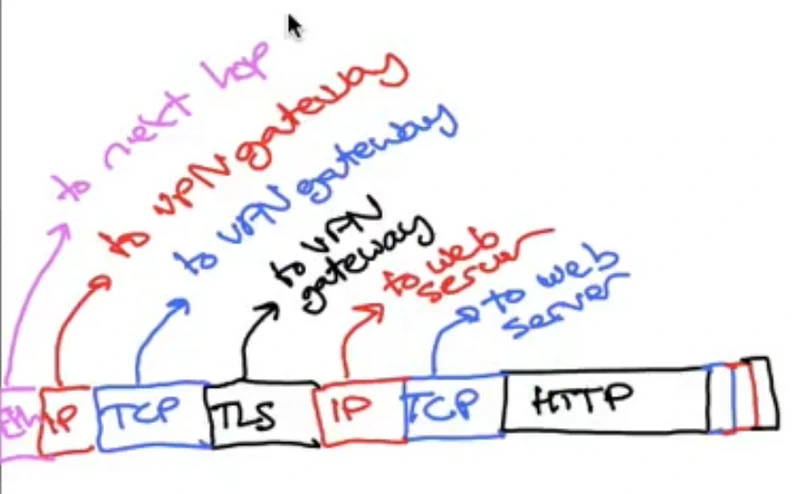 to next hop
to VPN gateway
to VPN gateway
to VPN
gateway
to web
server
to web
server
Eth IP TCP TLS IP TCP HTTP